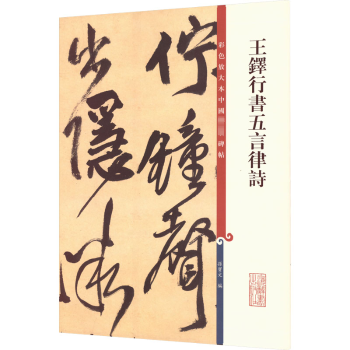 王鐸行書五言律詩
彩色放大本中國 碑帖
孫寶文 編
佇鐘聲
步隱